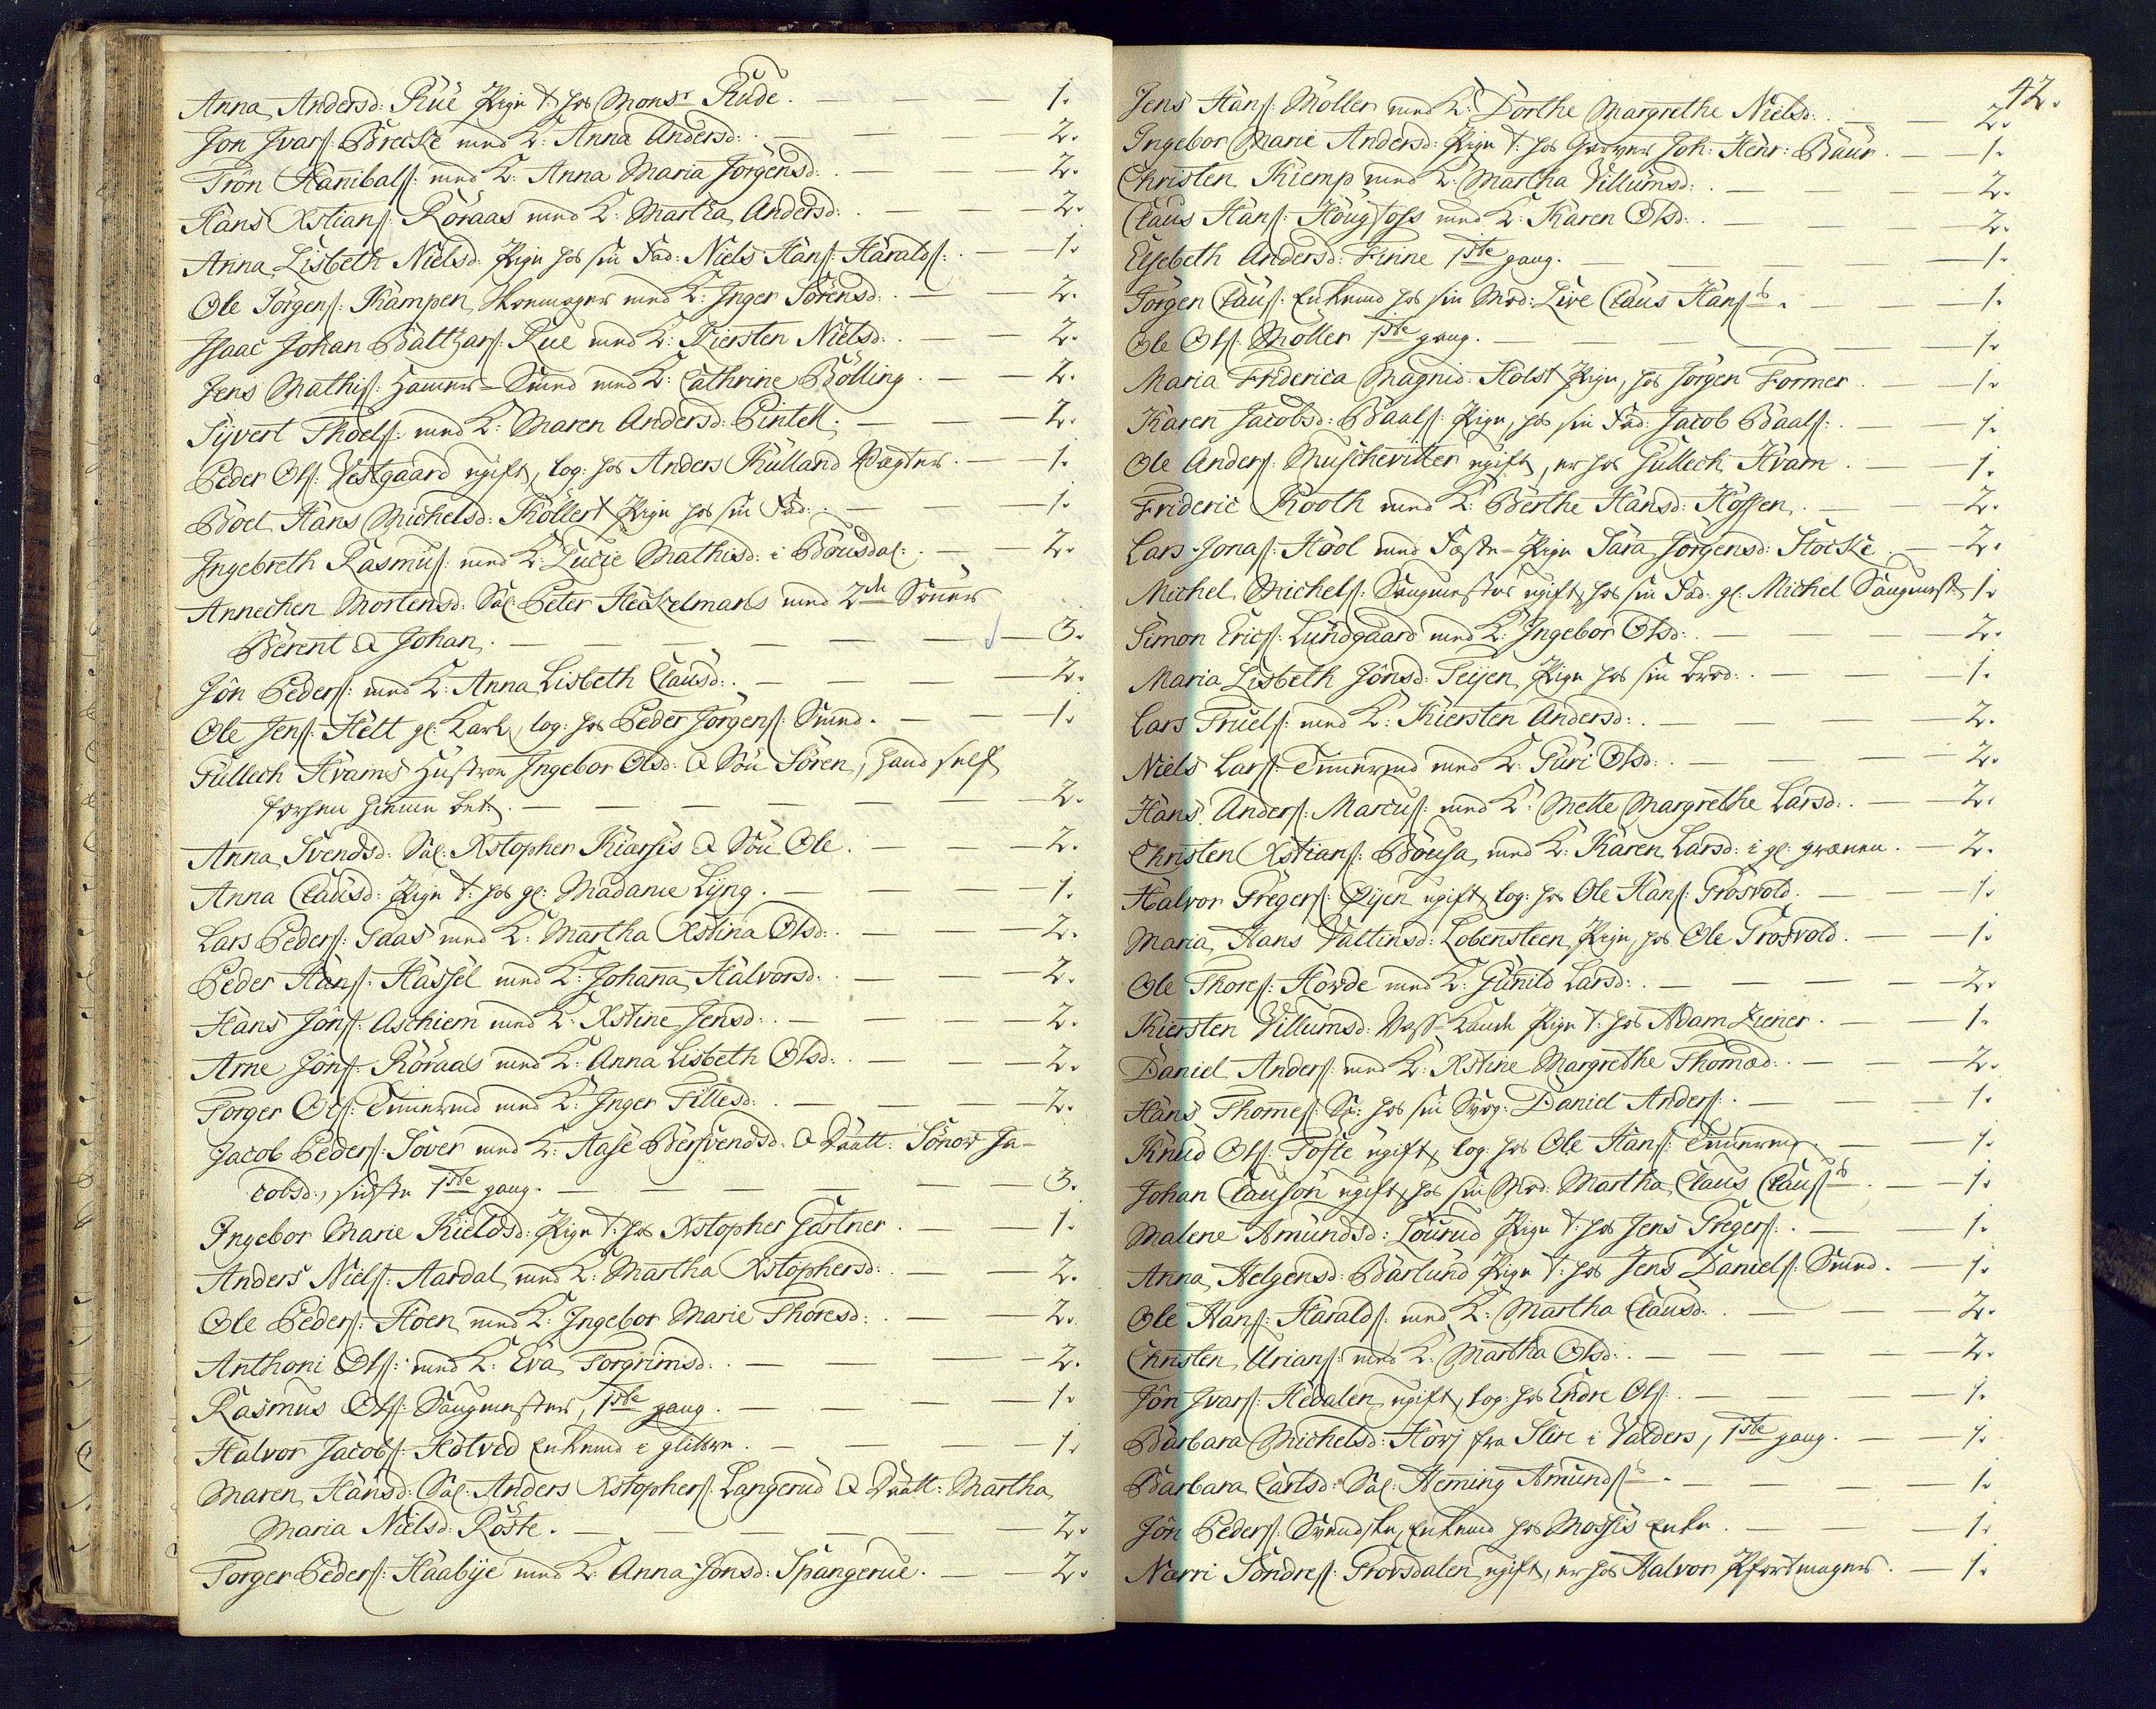 Anna Andersd: Rüe Pige t: hos Monsr Rude. — 1.
Jon Ivars: Brecke med K: Anna Andersd: — 2.
Trön Hanibals: med K: Anna Maria Jörgensd: — 2.
Hans Xstians: Röraas med K: Martha Andersd: — 2.
Anna Lisbeth Nielsd: Pige hos sin Fad: Niels Hans: Haralds: — 1.
Ole Jörgens: Kampen, Skomager med K: Inger Sörensd: — 2.
Isaac Johan Baltzars: Rue med K: Kiersten Nielsd: — 2.
Jens Mathis: Hammer-Smed med K: Cathrine Bölling — 2.
Syvert Thoels: med K: Maren Andersd: Pintell. — 2.
Peder Ols: Vestgaard ugift, log: hos Anders Rulland Vegter — 1.
Boel Hans Michelsd: Köllert Pige hos sin Fad: — 1.
Ingebreth Rasmus: med K: Lucie Mathisd: i Bousdal: — 2.
Annechen Mortensd: Sal: Peter Heckelmans med 2de Sönner
Berent & Johan. — 3.
Jön Peders: med K: Anna Lisbeth Clausd: — 2.
Ole Jens: Hëlt gl: Karl, log: hos Peder Jörgens: Smed. — 1.
Gullech Hvams Hustroe Ingebor Olsd: & Sön Sören, hand self
forhen hiemme ber: — 2.
Anna Svendsd: Sal: Xstopher Kiarsis & Sön Ole. — 2.
Anna Clausd: Pige t: hos gl: Madame Lyng. — 1.
Lars Peders: Gaas med K: Martha Xstina Olsd: — 2.
Peder Hans: Hassel med K: Johanna Halvorsd: — 2.
Hans Jöns: Aschiem med K: Xstine Jensd: — 2.
Arne Jöns: Röraas med K: Anna Lisbeth Olsd: — 2.
Torger Ols: Tömmermd med K: Inger Tillesd: — 2.
Jacob Peders: Söver med K: Aase Bersvendsd: & Daatt: Sönow Ja-
cobsd:, sidste 1ste gang. — 3.
Ingebor Marie Kieldsd: Pige t: hos Xstopher Gartner. — 1.
Anders Niels: Aardal med K: Martha Xstophersd: — 2.
Ole Peders: Hoen med K: Ingebor Marie Thoresd: — 2.
Anthoni Ols: med K: Eva Torgrimsd: — 2.
Rasmus Ols: Saugmester, 1ste gang. — 1.
Halvor Jacobs: Hotvëd Enkemd i glittre. — 1.
Maren Hansd: Sal: Anders Xstophers: Langerud & Daatt: Martha
Maria Nielsd: Röste. — 2.
Torger Peders: Haabye med K: Anna Jonsd: Spangerue. — 2.
42.
Jens Hans: Möller med K: Dorthe Margrethe Nielsd: — 2.
Ingebor Marie Andersd: Pige t: hos Garver Joh: Henr: Baur. — 1.
Christen Kiemp med K: Martha Villumsd: — 2.
Claus Hans: Hougfoss med K: Karen Olsd: — 2.
Elsebeth Andersd: Finne 1ste gang. — 1.
Jörgen Claus: Enkemd hos sin Mod: Live Claus Hansis. — 1.
Ole Ols: Möller 1ste gang. — 1.
Maria Friderica Magnid: Holst Pige, hos Jörgen Former — 1.
Karen Jacobsd: Baals: Pige, hos sin Fad: Jacob Baals: — 1.
Ole Anders: Muschevitter ugift, er hos Gullech Hvam. — 1.
Frideric Rooth med K: Berthe Hansd: Hoffen. — 2.
Lars Jonas: Hool med Feste-Pige Sara Jörgensd: Stocke — 2.
Michel Michels: Saugmester ugift, hos sin Fad: gl: Michel Saugmest: 1.
Simon Erics: Lundgaard med K: Ingebor Olsd: — 2.
Maria Lisbeth Jönsd: Teyen Pige hos sin Brod: — 1.
Lars Truels: med K: Kiersten Andersd: — 2.
Niels Lars: Tömmermd med K: Guri Olsd: — 2.
Hans Anders: Marcus: med K: Mette Margrethe Larsd: — 2.
Christen Xstians: Bousa, med K: Karen Larsd: i gl: — 2.
Halvor Gregers: Öyen ugift, log: hos Ole Hans: Grosvold. — 1.
Maria Hans Valtinsd: Lobensteen Pige, hos Ole Grosvold. — 1.
Ole Thores: Hovde med K: Gunild Larsd: — 2.
Kiersten Villumsd: Pige t: hos Adam Ziener. — 1.
Daniel Anders: med K: Xstine Margrethe Thomæd: — 2.
Hans Thomes: hos sin Svog: Daniel Anders: — 1.
Knud Ols: Tofte ugift, log: hos Ole Hans: Tömmermd. — 1.
Johan Clauson ugift, hos sin Mod: Martha Claus Clausis. — 1.
Malene Amundsd: Lourud Pige t: hos Jens Gregers: — 1.
Anna Helgensd: Barlund Pige t: hos Jens Daniels: Smed. — 1.
Ole Hans: Haralds: med K: Martha Clausd: — 2.
Christen Urians: med K: Martha Olsd: — 2.
Jön Ivars: Hedalen, ugift, log: hos Endre Ols: — 1.
Barbara Michelsd: Hövj fra Slire i Valders, 1ste gang. — 1.
Barbara Carlsd: Sal: Heming Amunds: — 1.
Jön Peders: Svendske, Enkemd hos Mossis Enke. — 1.
Narri Söndres: Trovsdalen, ugift, er hos Halvor Pfortmager. — 1.